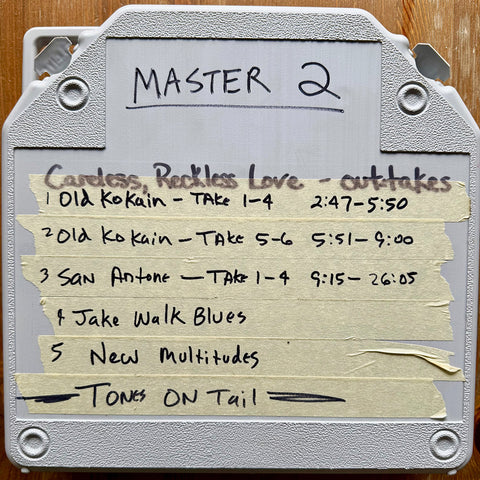 MASTER 2
Careless, Reckless Love - outtakes
1 Old KoKain - TAke 1-4 2:47-5:50
2 Old KoKain - TAke 5-6 5:51-9:00
3 SAN Antone - TAKE 1-4 9:15-26:05
4 Jake Walk Blues
5 New Multitudes
TONES ON Tail